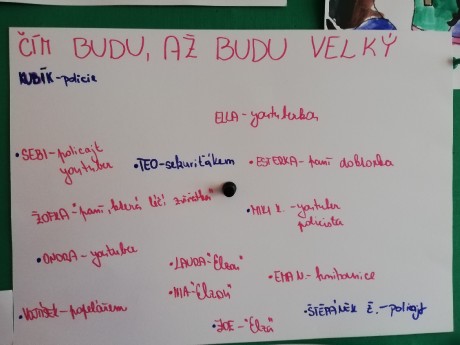 ČÍM BUDU, AŽ BUDU VELKÝ
KUBÍK - policie
ELLA - youtuberka
• SEBI - policajt
youtuber
• TEO - sekuriťákem
• ESTERKA - paní doktorka
ŽOFKA - "paní, která léčí zvířátka"
• MIKI K. - youtuber
policista
• ONDRA - youtuber
• LAURA - "Elzou"
• MIA - "Elzou"
• EMA N. - knihovnice
• VOJTÍŠEK - popelářem
• ZOE - "Elza"
• ŠTĚPÁNEK Č. - policajt